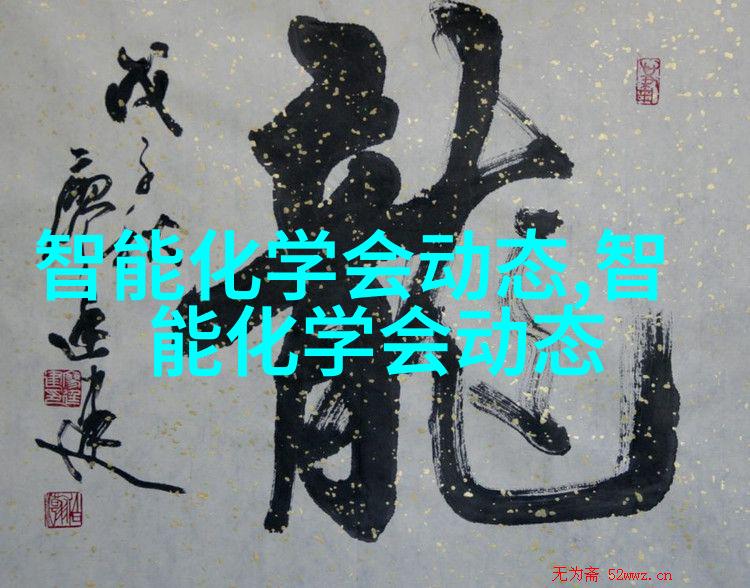 龍
戊子秋
智能化学会动态,智
能化学会动态
无为斋 52wwz.cn